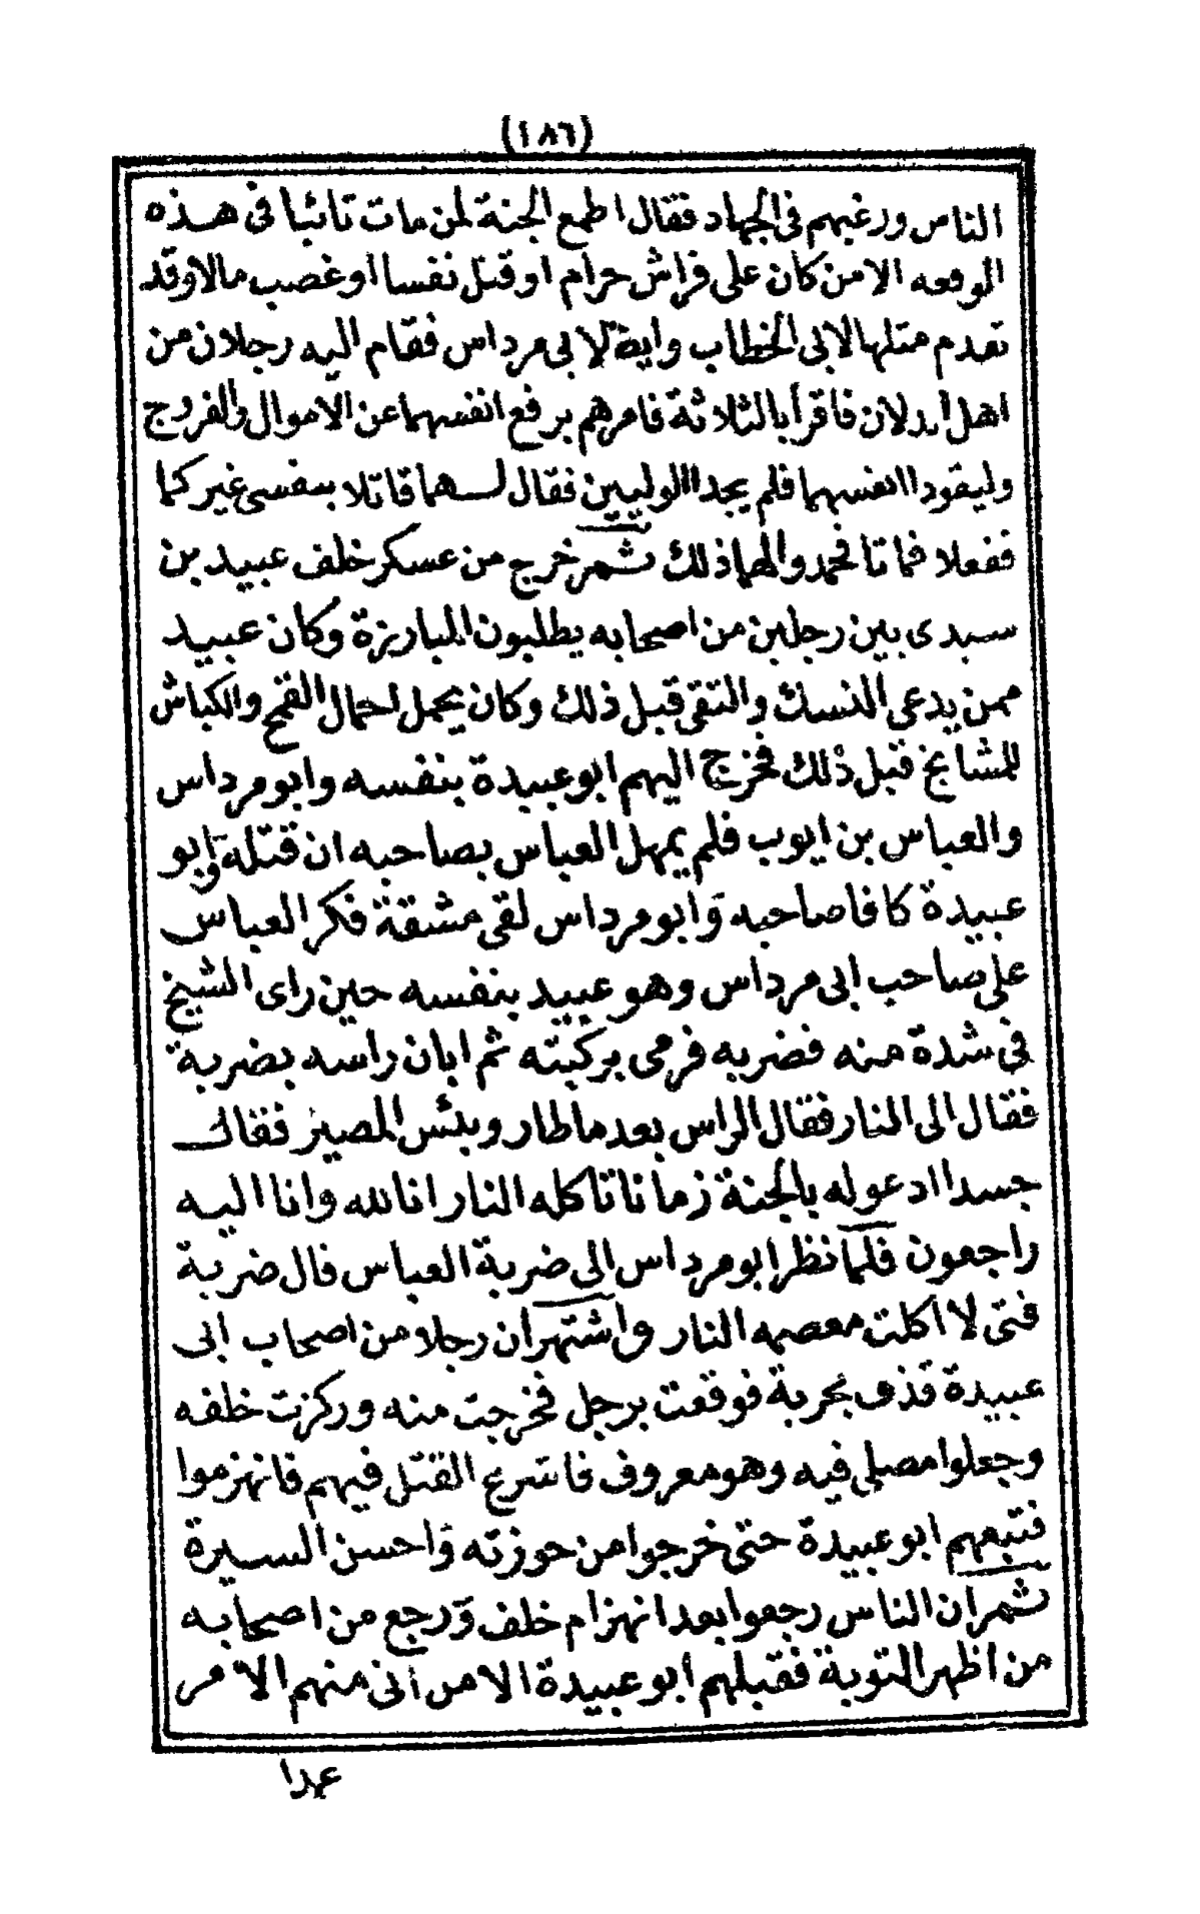 (١٨٦)
الناس ورغبهم فى الجهاد فقال اطمع الجنة لمن مات تائبا فى هذه
الموقعه الا من كان على فراش حرام او قتل نفسا او غصب مالا وقد
تقدم مثلها لابى الخطاب وايضا لابى مرداس فقام اليه رجلان من
اهل اردلان فاقرأ بالثلاثة فامرهم برفع انفسهما عن الاموال والفروج
وليقودا انفسهما فلم يجدا الوليين فقال لهما قاتلا بنفسى غير كما
ففعلا فماتا فحمد والهما ذلك ثمر خرج من عسكر خلف عبيد بن
سبدى بين رجلين من اصحابه يطلبون المبارزة وكان عبيد
ممن يدعى النسك والتقى قبل ذلك وكان يحمل احمال القمح والكباش
للمشايخ قبل ذلك فخرج اليهم ابو عبيدة بنفسه وابو مرداس
والعباس بن ايوب فلم يمهل العباس بصاحبه ان قتله وابو
عبيدة كافا صاحبه وابو مرداس لقى مشقة فكر العباس
على صاحب ابى مرداس وهو عبيد بنفسه حين راى الشيخ
فى شدة منه فضربه فرمى بركبته ثم ابان راسه بضربة
فقال الى النار فقال الراس بعد ما طار وبئس المصير فقال
جسدا ادعوله بالجنة زمانا تاكله النار انا لله وانا اليه
راجعون فلما نظر ابو مرداس الى ضربة العباس قال ضربة
فتى لا اكلت معصمه النار واشتهر ان رجلا من اصحاب ابى
عبيدة قذف بحربة فوقعت برجل فخرجت منه وركزت خلفه
وجعلوا مصلى فيه وهو معروف فاسرع القتل فيهم فانهزموا
فتبعهم ابو عبيدة حتى خرجوا من حوزته واحسن السيرة
ثمر ان الناس رجعوا بعد انهزام خلف ورجع من اصحابه
من اظهر التوبة فقبلهم ابو عبيدة الا من أتى منهم الامر
عمدا